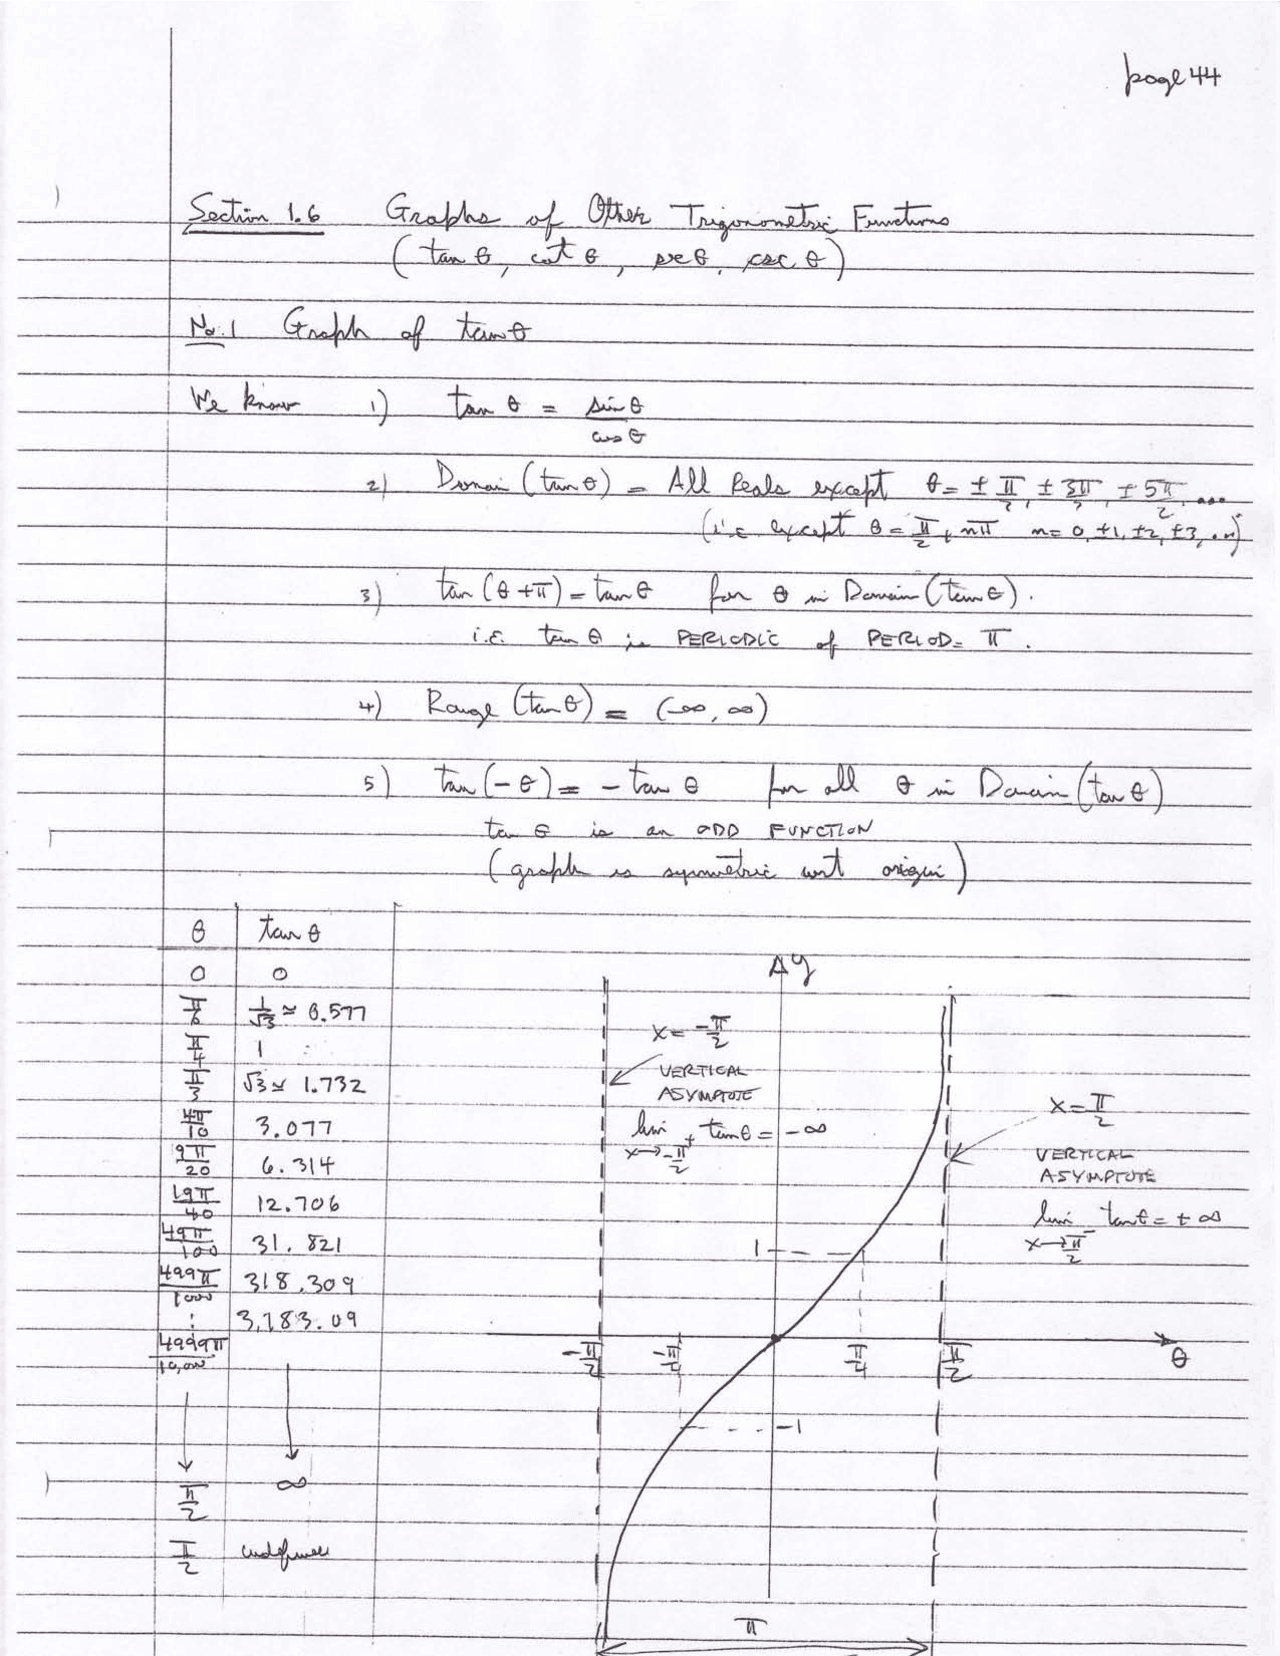 page 44
Section 1.6 Graphs of Other Trigonometric Functions
(tan θ, cot θ, sec θ, csc θ)
No.1 Graph of tan θ
We know 1) tan θ = sin θ
cos θ
2) Domain (tan θ) = All Reals except θ = ± π/2, ± 3π/2, ± 5π/2, ...
(i.e. except θ = π/2 + nπ n = 0, ±1, ±2, ±3, ...)
3) tan (θ + π) = tan θ for θ in Domain (tan θ).
i.e. tan θ is PERIODIC of PERIOD = π.
4) Range (tan θ) = (-∞, ∞)
5) tan (-θ) = - tan θ for all θ in Domain (tan θ)
tan θ is an ODD FUNCTION
(graph is symmetric wrt origin)
θ tan θ
0 0
π/6 1/√3 ≃ 0.577
π/4 1
π/3 √3 ≃ 1.732
4π/10 3.077
9π/20 6.314
19π/40 12.706
49π/100 31.821
499π/1000 318.309
: 3,183.09
4999π/10,000
π/2 ∞
π/2 undefined
y
x = -π/2
VERTICAL
ASYMPTOTE
lim tan θ = -∞
x→-π/2⁺
x = π/2
VERTICAL
ASYMPTOTE
lim tan θ = +∞
x→π/2⁻
1
-π/2 -π/4 π/4 π/2 θ
-1
π